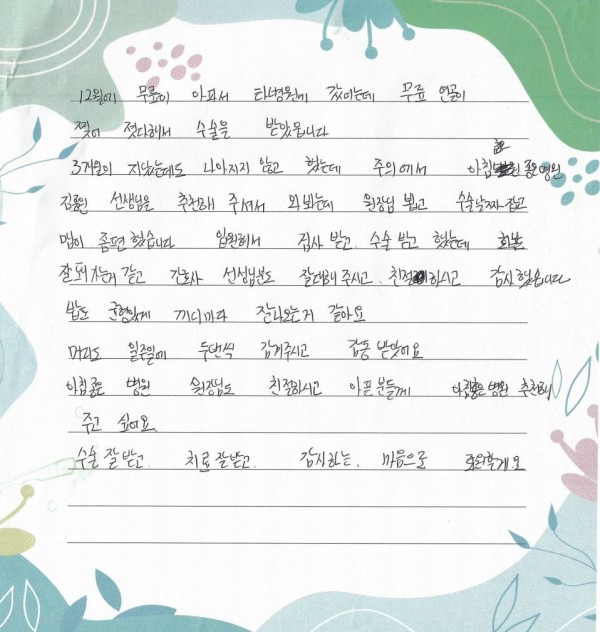 12월에 무릎이 아파서 타병원에 갔어는데 무릎 연골이
찢어 젓다해서 수술을 받았읍니다
3개월이 지났는데도 나아지지 않고 했는데 주의에서 아침 좋은병원
김종원 선생님을 추천해 주셔서 와봤는데 원장님 뵙고 수술날짜 잡고
맴이 좀편했습니다 입원해서 검사 받고. 수술 받고 했는데 회복
잘되 가는거 같고 간호사 선생님분도 잘대해 주시고. 친절하시고 감사했읍니다
밥도 균형있게 끼디마다 잘나오는거 같아요
머리도 일주일에 두번씩 감겨주시고 감동 받앗어요
아침좋은 병원 원장님도 친절하시고 아픈분들께 아침좋은 병원 추천해
주고 싶어요.
수술 잘받고. 치료 잘받고. 감사하는. 마음으로 퇴원할게요